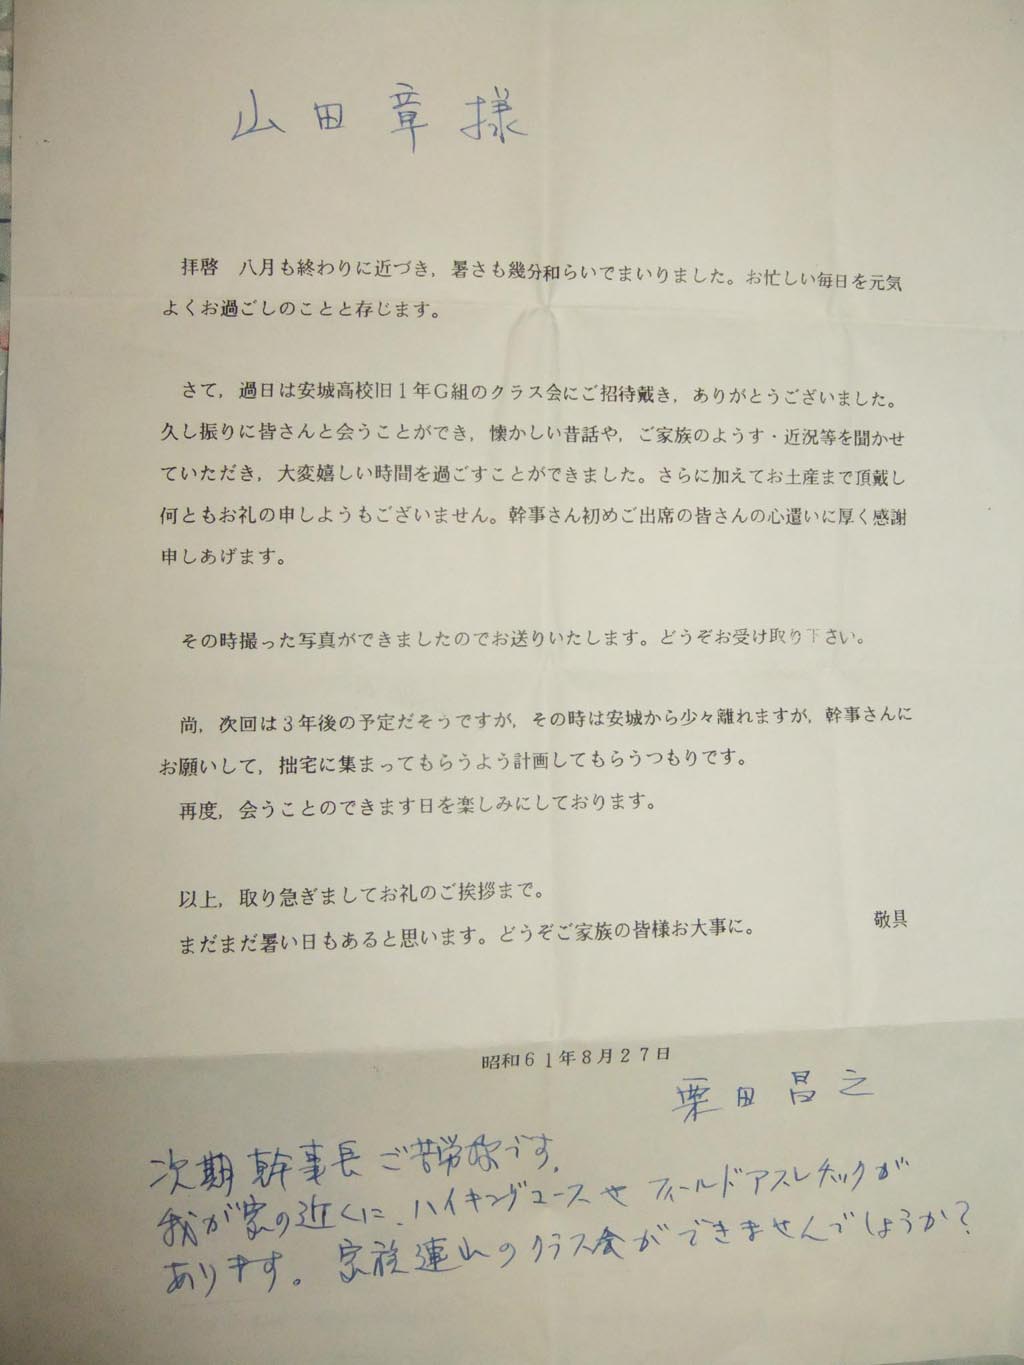 山田章様
拝啓　八月も終わりに近づき，暑さも幾分和らいでまいりました。お忙しい毎日を元気
よくお過ごしのことと存じます。
さて，過日は安城高校旧１年Ｇ組のクラス会にご招待戴き，ありがとうございました。
久し振りに皆さんと会うことができ，懐かしい昔話や，ご家族のようす・近況等を聞かせ
ていただき，大変嬉しい時間を過ごすことができました。さらに加えてお土産まで頂戴し
何ともお礼の申しようもございません。幹事さん初めご出席の皆さんの心遣いに厚く感謝
申しあげます。
その時撮った写真ができましたのでお送りいたします。どうぞお受け取り下さい。
尚，次回は３年後の予定だそうですが，その時は安城から少々離れますが，幹事さんに
お願いして，拙宅に集まってもらうよう計画してもらうつもりです。
再度，会うことのできます日を楽しみにしております。
以上，取り急ぎましてお礼のご挨拶まで。
まだまだ暑い日もあると思います。どうぞご家族の皆様お大事に。
敬具
昭和６１年８月２７日
栗田昌之
次期幹事長ご苦労様です。
我が家の近くに、ハイキングコースや フィールドアスレチックが
あります。家族連れのクラス会ができませんでしょうか？